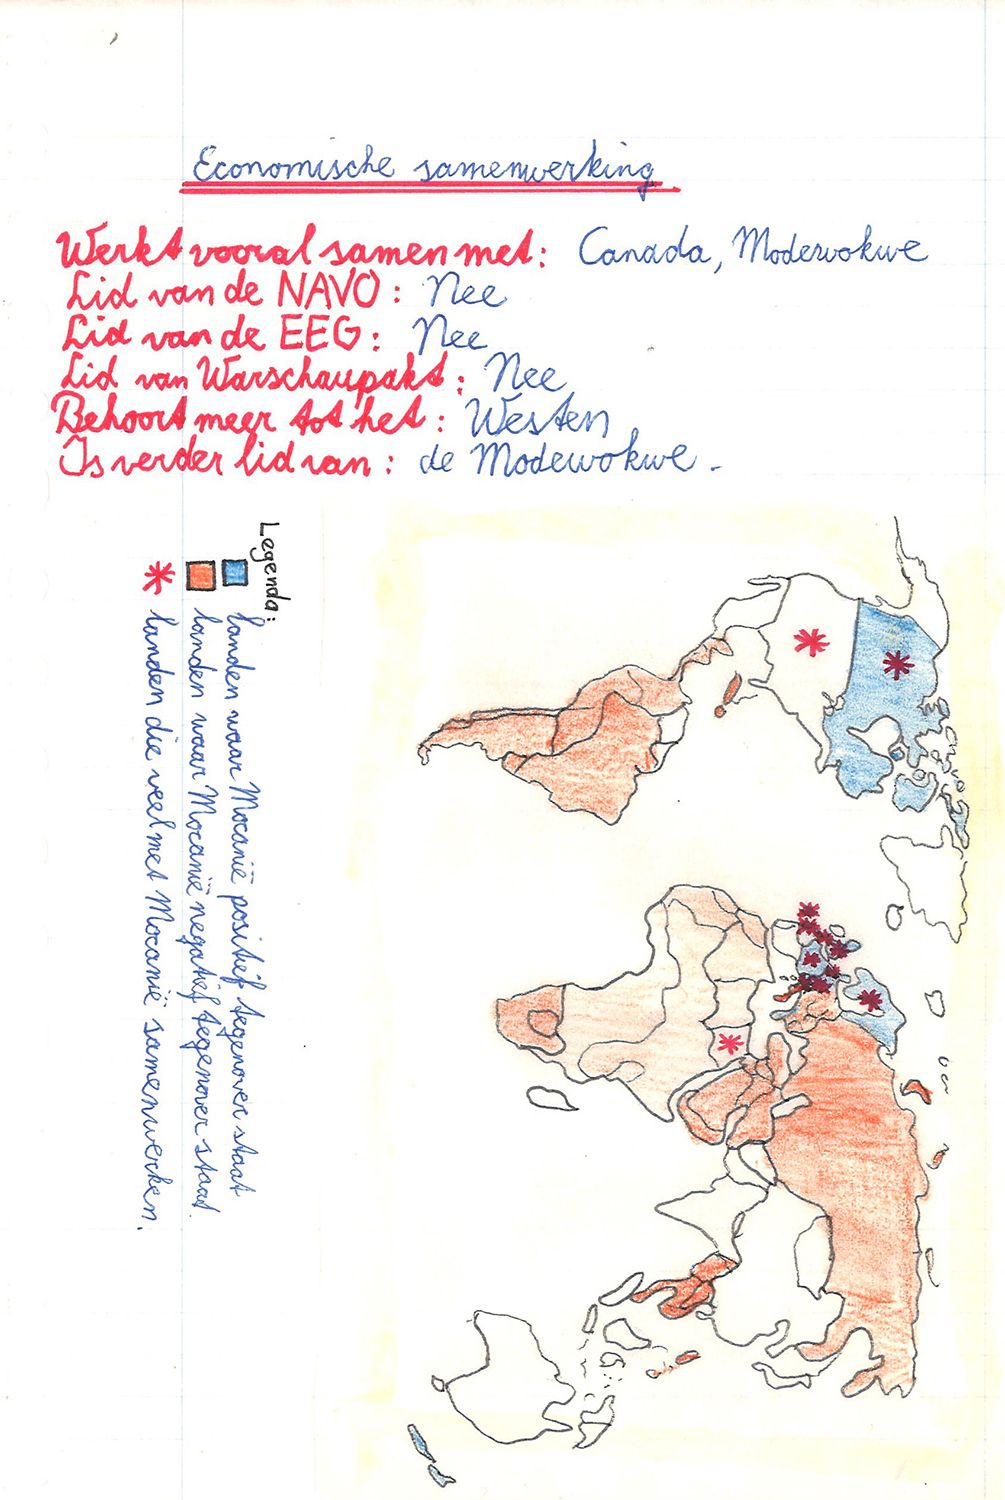 Economische samenwerking
Werkt vooral samen met: Canada, Modewokwe
Lid van de NAVO: Nee
Lid van de EEG: Nee
Lid van Warschaupakt: Nee
Behoort meer tot het: Westen
Is verder lid van: de Modewokwe.
Legenda:
landen waar Mocanië positief tegenover staat
landen waar Mocanië negatief tegenover staat.
landen die veel met Mocanië samenwerken.